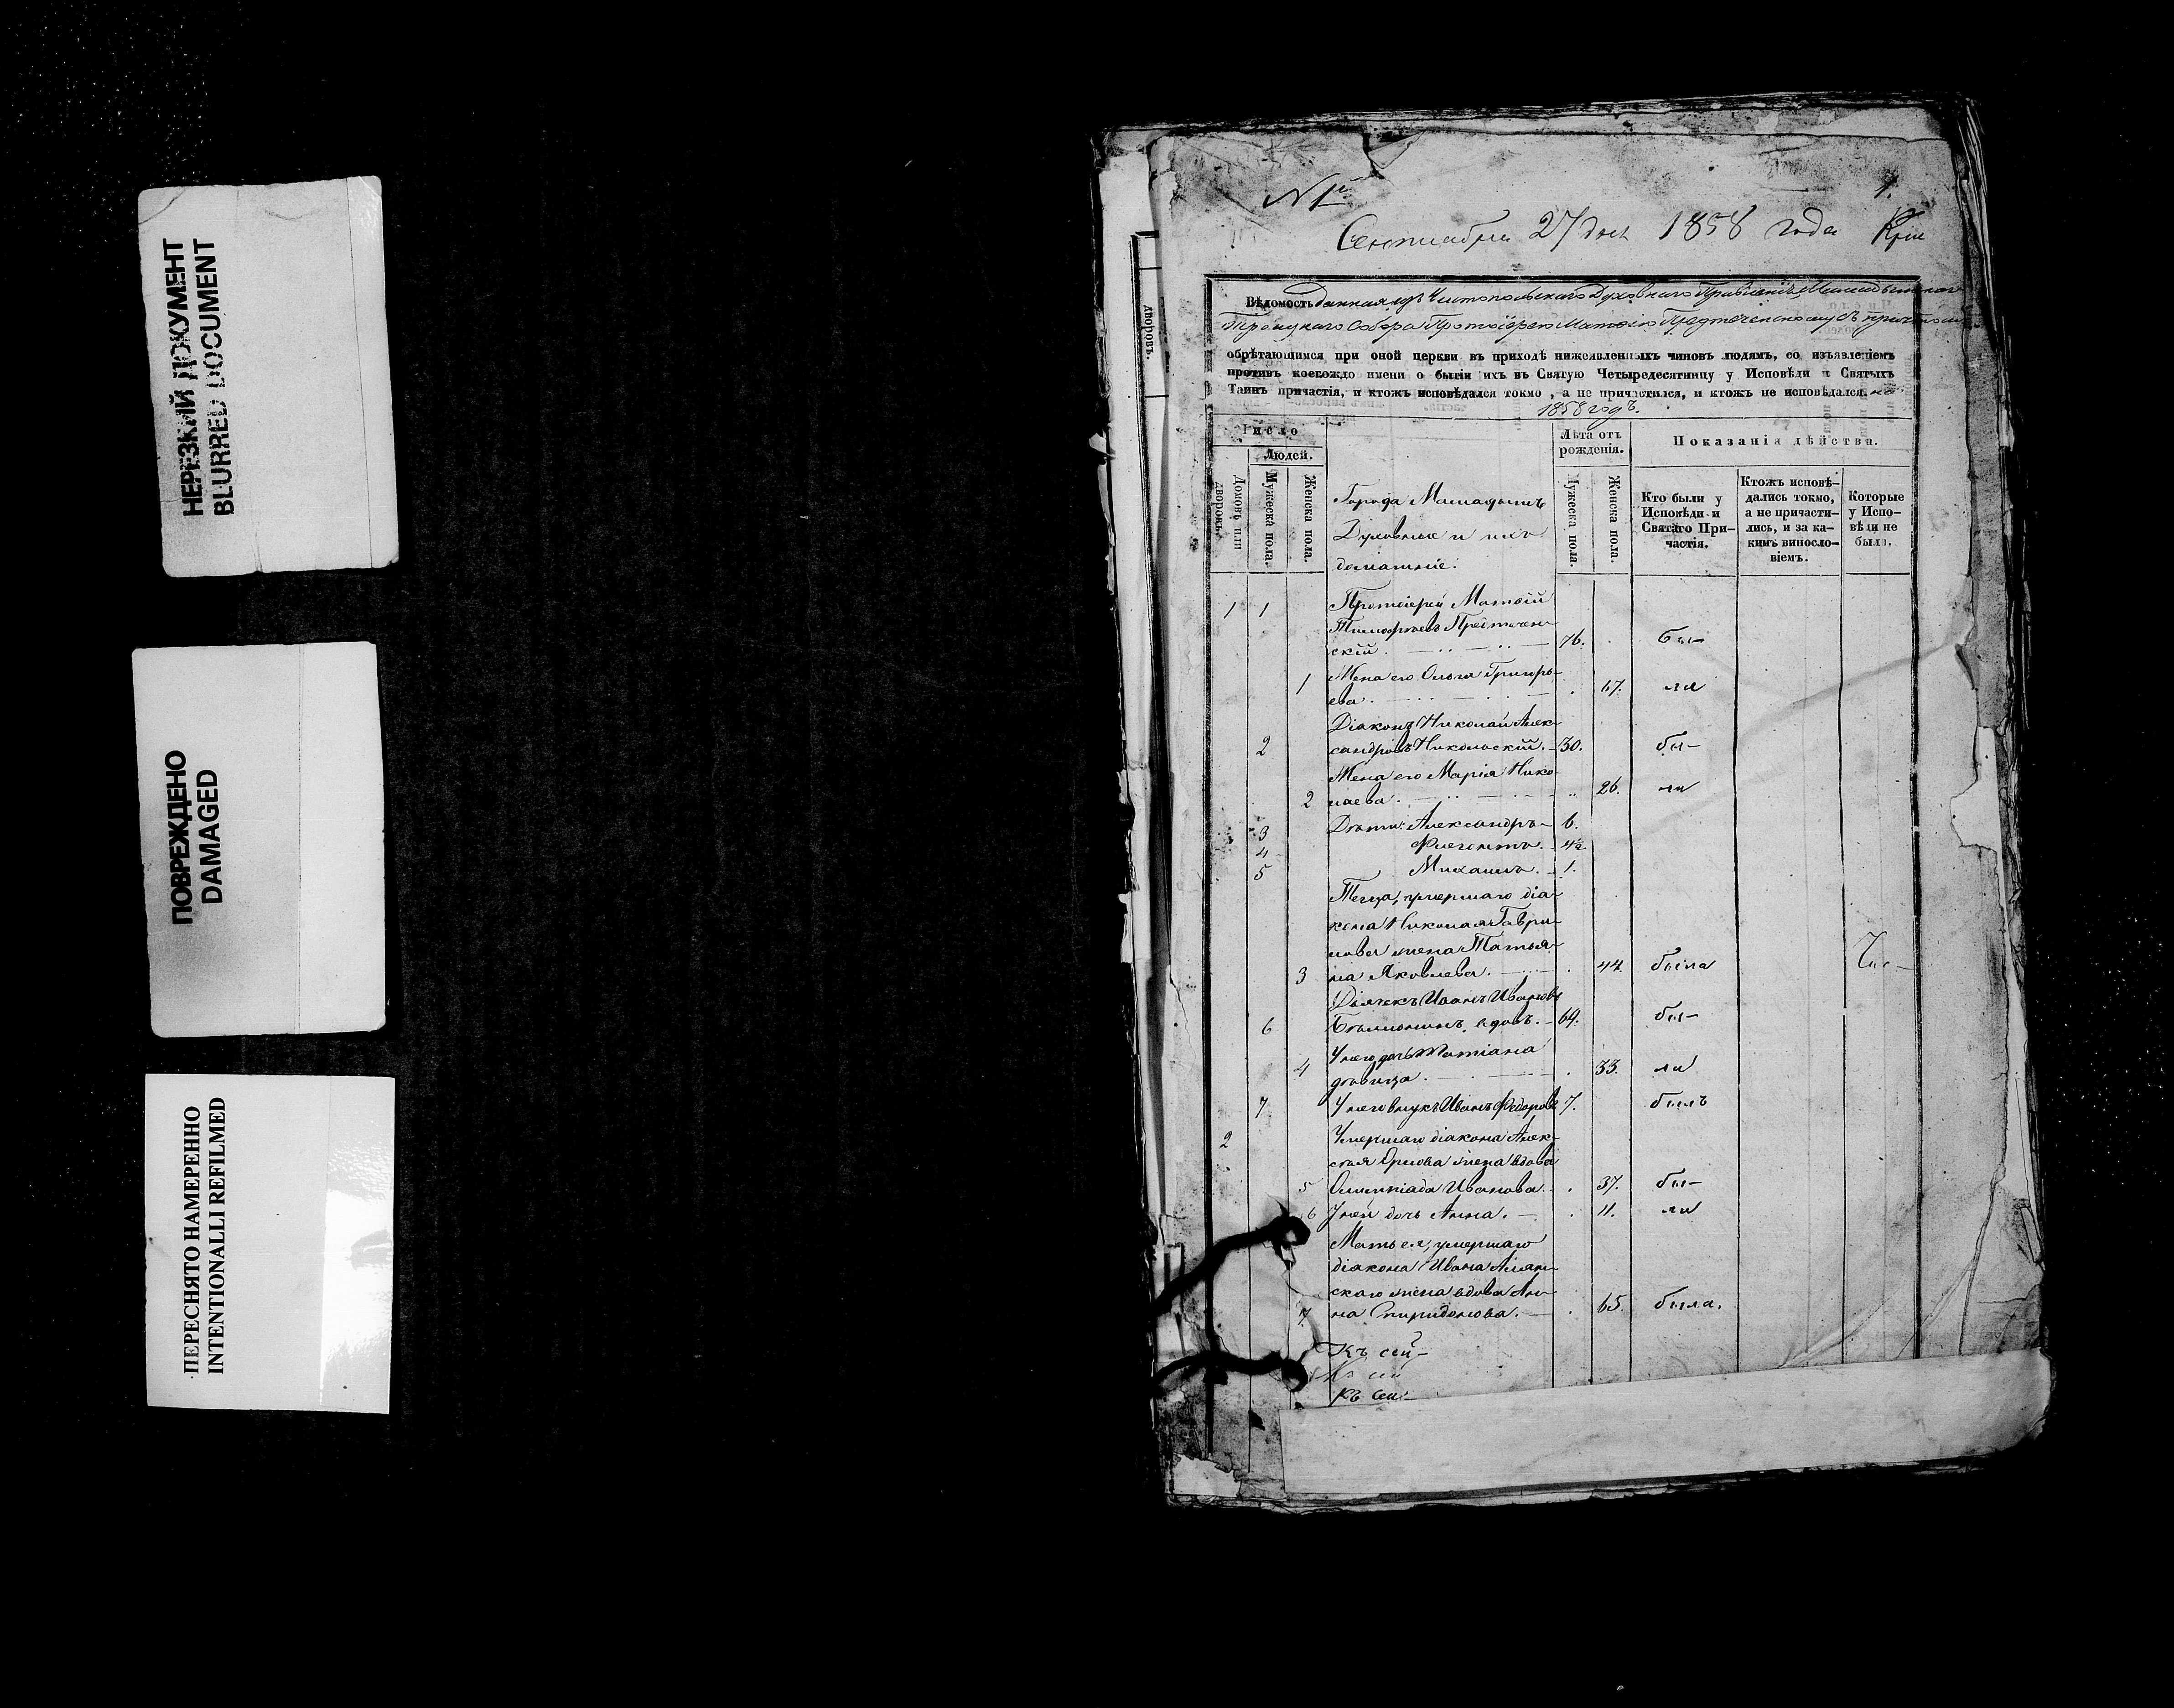 НЕРЕЗКИЙ ДОКУМЕНТ
BLURRED DOCUMENT
ПОВРЕЖДЕНО
DAMAGED
ПЕРЕСНЯТО НАМЕРЕННО
INTENTIONALLI REFILMED
дворовъ.
N 1й
1.
Сентября 27 дня 1858 года
Вѣдомость данная изъ Чистопольскаго Духовнаго Правленія, Мамадышскаго
Троицкаго Собора Протоіерею Матѳію Предтеченскому съ причтомъ
обрѣтающимся при оной церкви въ приходѣ нижеявленныхъ чиновъ людямъ, со изъявленіемъ
противъ коегождо имени о бытіи ихъ въ Святую Четыредесятницу у Исповѣди и Святыхъ
Таинъ причастія, и ктожъ исповѣдался токмо, а не причастился, и ктожъ не исповѣдался. на
1858 годъ.
Число
Людей.
Домовъ или дворовъ.
Мужеска пола.
Женска пола.
Города Мамадыша
Духовные и ихъ
домашніе.
Лѣта отъ
рожденія.
Мужеска пола.
Женска пола.
Показанія дѣйства.
Кто были у
Исповѣди и
Святаго При-
частія.
Ктожъ исповѣ-
дались токмо,
а не причасти-
лись, и за ка-
кимъ винословіемъ.
Которые
у Испо-
вѣди не
были.
1 1 Протоіерей Матѳій
Тимоѳеевъ Предтечен-
скій. 76. бы-
1 Жена его Ольга Григорь-
ева. 67. ли
Діаконъ Николай Алек-
2 сандровъ Никольскій. 30. бы-
Жена его Марія Нико-
2 лаева. 26. ли
3 Дѣти: Александръ 6.
4 Флегонтъ. 4½
5 Михаилъ. 1.
Теща, умершаго діа-
кона Николая Гаври-
лова жена Татья-
3 на Яковлева. 44. была
Дьячекъ Иванъ Ивановъ
6 вдовъ. 69. бы-
У него дочь Татіана
4 дѣвица. 33. ли
7 У него внукъ Иванъ Ѳедоровъ 7. былъ
2 Умершаго діакона Алек-
сѣя Орлова жена вдова
5 Олимпіада Иванова. 37. бы-
6 У ней дочь Анна. 11. ли
Мать ея, умершаго
діакона Ивана
скаго жена вдова Ан-
7 на Спиридонова. 65. была.
Къ сей
Къ сей